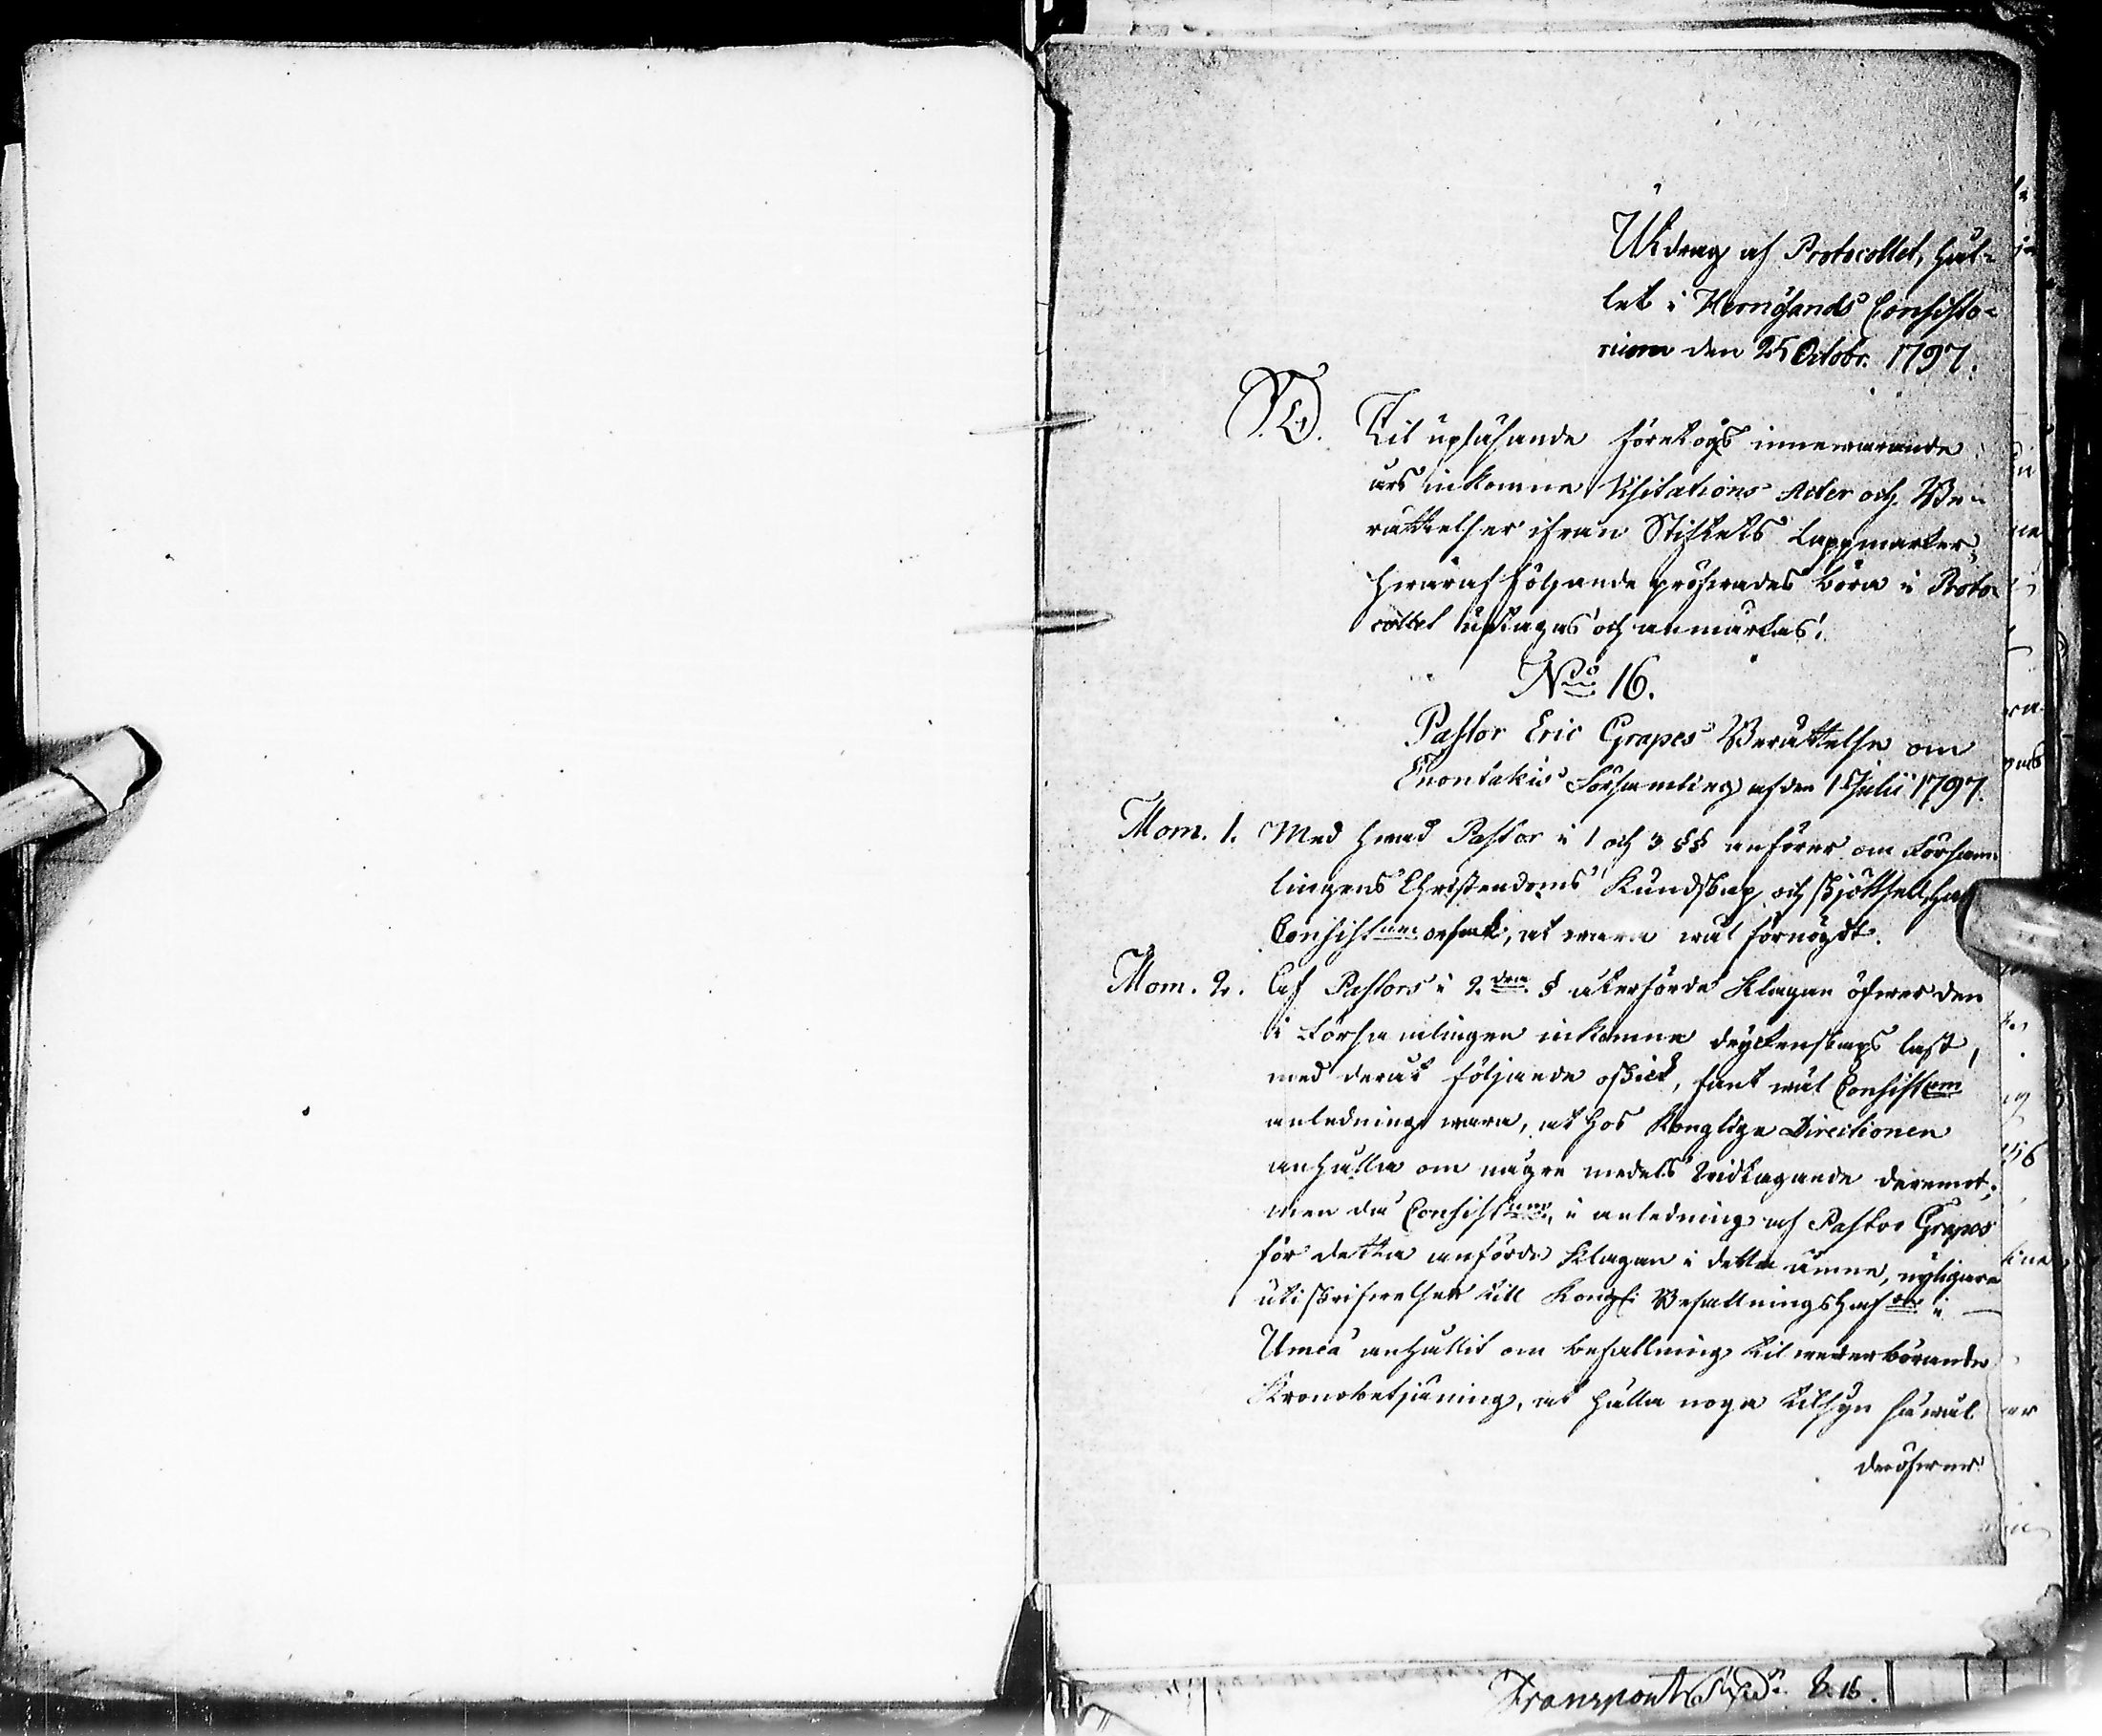 Utdrag af Protocollet, hål-
let i Hernösands Consisto-
rium den 25 Octobr. 1797.
S. D. Til uplåsande företogs innewarande
års inkomne Visitations Acter och Be-
rättelser ifrån Stiftets Lappmarker,
hwaraf följande pröfwades böra i Proto-
collet uptagas och anmärkas:
No 16.
Pastor Eric Grapes Berättelse om
Enontekis Församling af den 1 Julii 1797.
Mom. 1. Med hwad Pastor i 1 och 3 §§ anförer om Försam-
lingens Christendoms Kundskap och skjöttsel, har
Consistium orsak, at wara wäl förnögdt.
Mom. 2. Af Pastors i 2dra § återförde Klagan öfwer den
i Församlingen inkomne dryckenskaps last,
med deraf följande oskick, fant wäl Consistium
anledning wara, at hos Kongliga Directionen
anhålla om någre medels widtagande deremot;
men då Consistium, i anledning af Pastor Grapes
för detta anförde Klagan i detta ämne, nyligare
uti skrifwelser till Kongl: Befallningshafde i
Umeå anhållit om befallning til wederbörande
Kronobetjäning, at hålla noga tilsyn såwäl
deröfwer
Transport 8. 16.